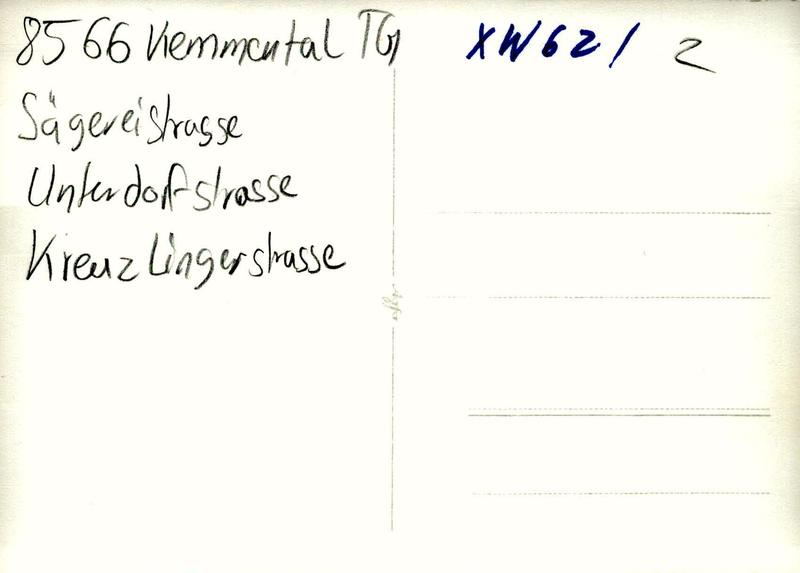 8566 Kemmental TG
Sägereistrasse
Unterdorfstrasse
Kreuzlingerstrasse
XW621 2